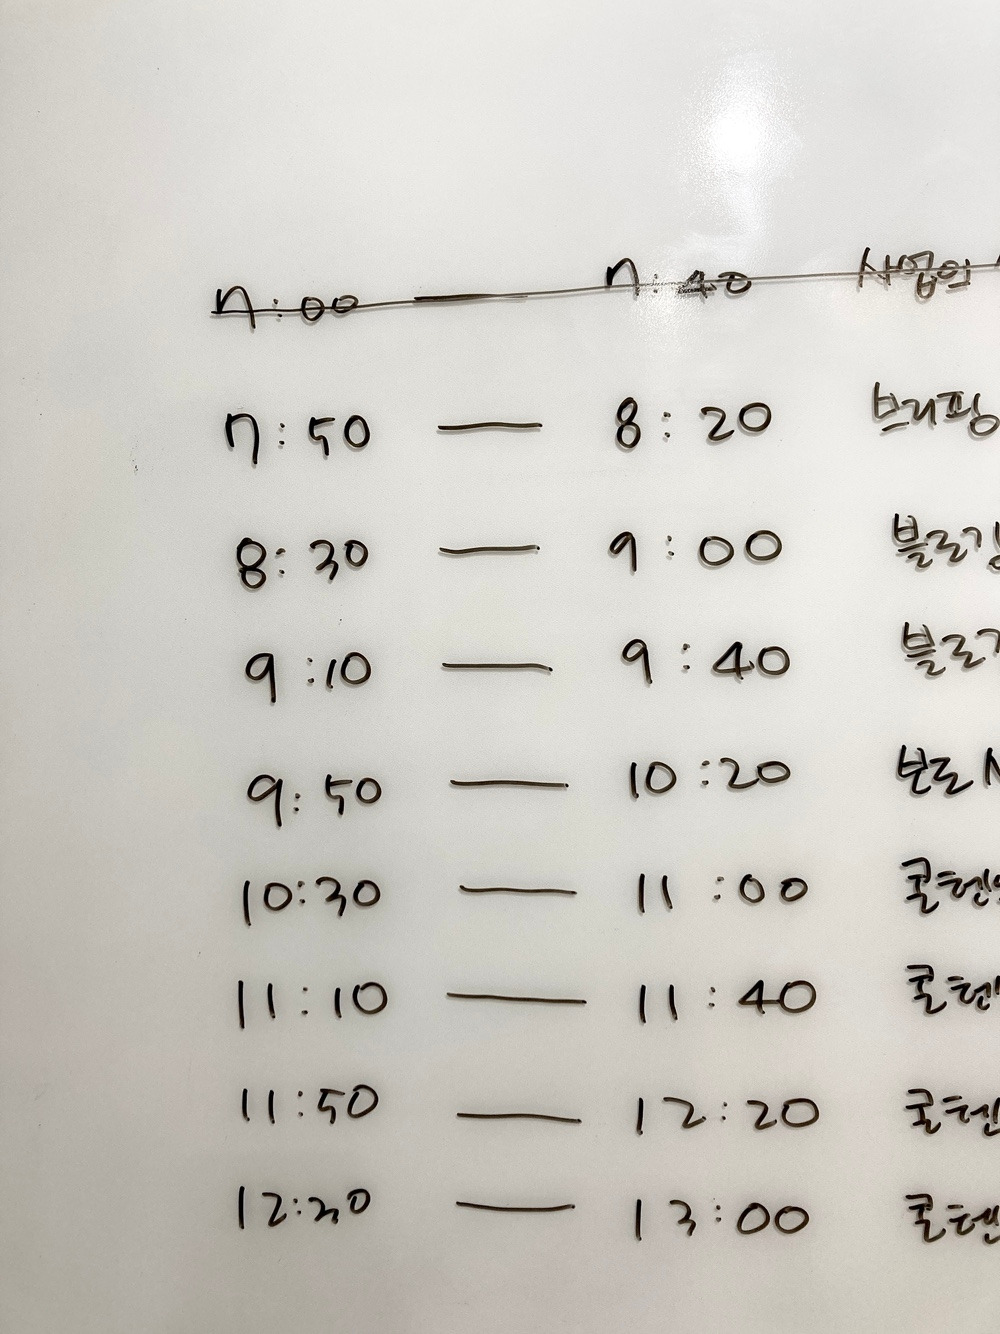 7:00 — 7:40 사업의
7:50 — 8:20 브리핑
8:30 — 9:00 블로깅
9:10 — 9:40 블로
9:50 — 10:20 보도
10:30 — 11:00 콜텐
11:10 — 11:40 콜텐
11:50 — 12:20 콜텐
12:30 — 13:00 콜텐